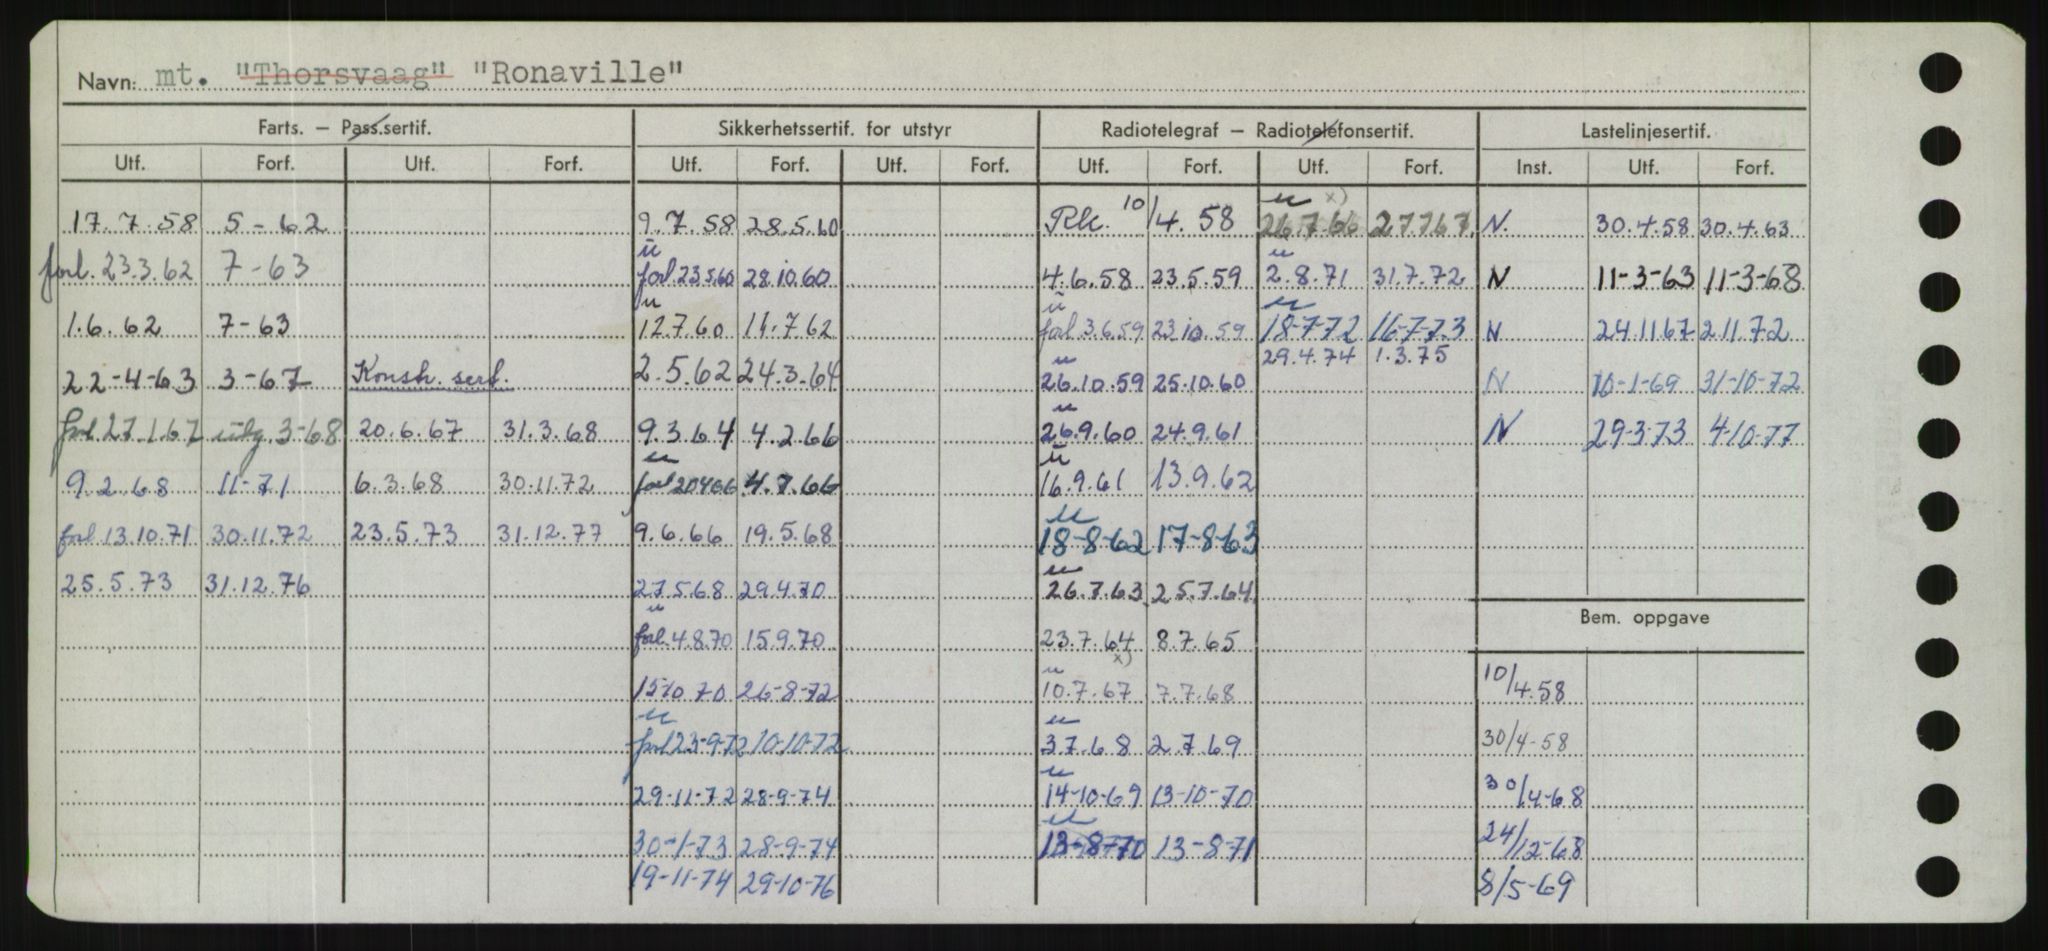 Navn: mt. "Thorsvaag" "Ronaville"
Farts. — Pass.sertif. Sikkerhetssertif. for utstyr Radiotelegraf — Radiotelefonsertif. Lastelinjesertif.
Utf. Forf. Utf. Forf. Utf. Forf. Utf. Forf. Utf. Forf. Utf. Forf. Inst. Utf. Forf.
u x)
17.7.58 5-62 9.7.58 28.5.60 Rk. 10/4.58 26.7.66 27767 N. 30.4.58 30.4.63
ü u
forl. 23.3.62 7-63 forl 23.5.60 28.10.60 4.6.58 23.5.59 2.8.71 31.7.72 N 11-3-63 11-3-68
u ü u
1.6.62 7-63 12.7.60 11.7.62 forl 3.6.59 23.10.59 18-7-72 16-7-73 N 24.11.67 2.11.72
u 29.4.74 1.3.75
22-4-63 3-67 Konstr. sert. 2.5.62 24.3.64 26.10.59 25.10.60 N 10-1-69 31-10-72
u
forl 27.1.67 3-68 20.6.67 31.3.68 9.3.64 4.2.66 26.9.60 24.9.61 N 29-3-73 4-10-77
u ü
9.2.68 11-71 6.3.68 30.11.72 forl 20466 4.7.66 16.9.61 13.9.62
u
forl 13.10.71 30.11.72 23.5.73 31.12.77 9.6.66 19.5.68 18-8-62 17-8-63
u
25.5.73 31.12.76 27.5.68 29.4.70 26.7.63 25.7.64
u Bem. oppgave
forl. 4.8.70 15.9.70 23.7.64 8.7.65
u x)
15.10.70 26-8-72 10.7.67 7.7.68 10/4.58
u u
forl 23-9-72 10-10-72 3.7.68 2.7.69 30/4-58
u
29-11-72 28-9-74 14-10-69 13-10-70 30/4-68
u
30-1-73 28-9-74 13-8-70 13-8-71 24/12-68
19-11-74 29-10-76 8/5-69